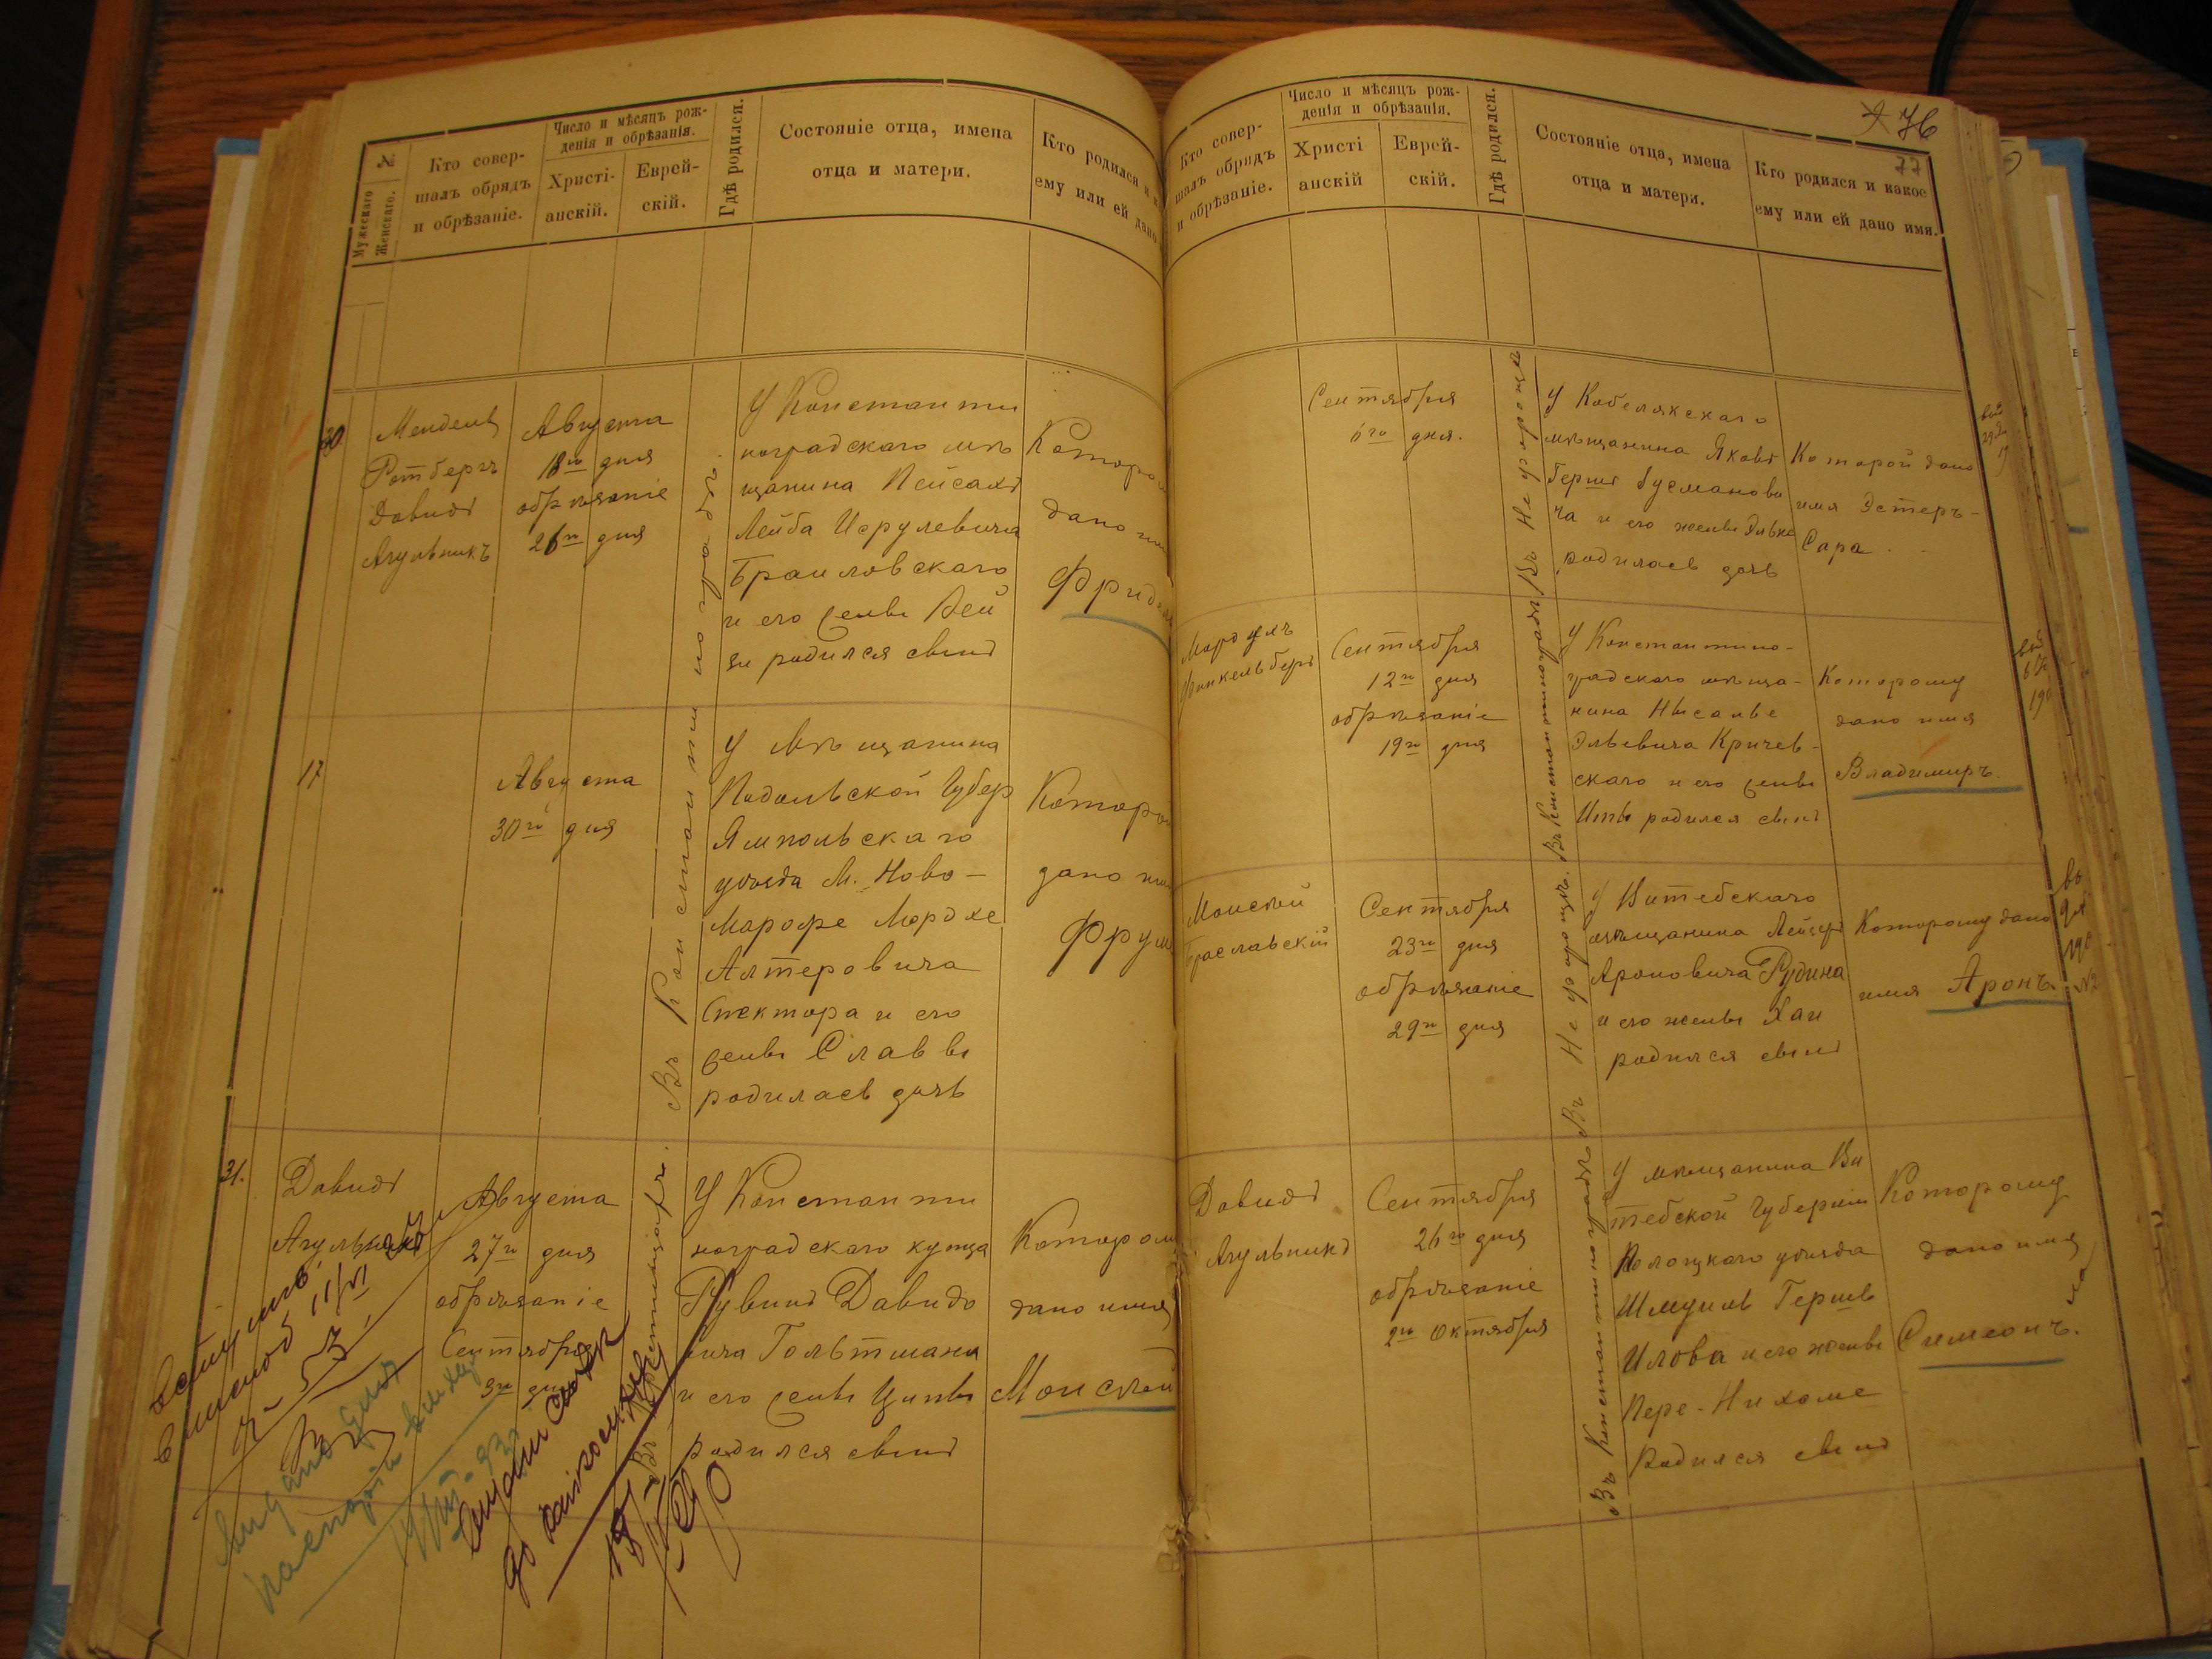 №
Мужескаго
Женскаго.
Кто совер-
шалъ обрядъ
и обрѣзаніе.
Число и мѣсяцъ рож-
денія и обрѣзанія.
Христі-
анскій.
Еврей-
скій.
Гдѣ родился.
Состояніе отца, имена
отца и матери.
Кто родился и
ему или ей дано
30
Мендель
Ротбергъ
Давидъ
Агульникъ
Августа
18го дня
обрѣзаніе
26го дня
У Константи
ноградскаго мѣ
щанина Пейсахъ
Лейба Исрулевича
Браиловскаго
и его жены Лей
зи родился сынъ
дано
17
Августа
30го дня
У Мѣщанина
Подольской Губер
Ямпольскаго
уѣзда М. Ново-
Марофе Мордхе
Алтеровича
Спектора и его
жены Славвы
родилась дочь
дано
Фрум
31.
Давидъ
Агульникъ
Августа
27го дня
обрѣзаніе
Сентября
3го дня
У Константи
ноградскаго купца
Рувинъ Давидо
вича Гольтмана
и его жены Ципы
родился сынъ
дано имя
Моисей
Въ Константиноградѣ.
76
77
Кто совер-
шалъ обрядъ
и обрѣзаніе.
Число и мѣсяцъ рож-
денія и обрѣзанія.
Христі
анскій
Еврей-
скій.
Гдѣ родился.
Состояніе отца, имена
отца и матери.
Кто родился и какое
ему или ей дано имя.
Сентября
6го дня.
У Кобелякскаго
мѣщанина Яковъ
Гершъ Гусманови
ча и его жены Ривке
родилась дочь
Которой дано
имя Эстеръ-
Сара
Мордухъ
Финкельбергъ
Сентября
12го дня
обрѣзаніе
19го дня
Въ Константиноградѣ
У Константино-
градскаго мѣща-
нина Нысанье
Эльевича Кричев-
скаго и его жены
Иты родился сынъ
Которому
дано имя
Владимиръ.
Моисей
Браславскій
Сентября
23го дня
обрѣзаніе
29го дня
У Витебскаго
мѣщанина Лейзеръ
Ароновича Рудина
и его жены Хаи
родился сынъ
Которому дано
имя Аронъ.
Давидъ
Агульникъ
Сентября
26го дня
обрѣзаніе
2го Октября
Въ Константиноградѣ
У мѣщанина Ви
тебской Губерніи
Полоцкаго уѣзда
Шмуиль Гершъ
Илова и его жены
Пере-Нихаме
Родился сынъ
Которому
дано имя
Симеонъ.